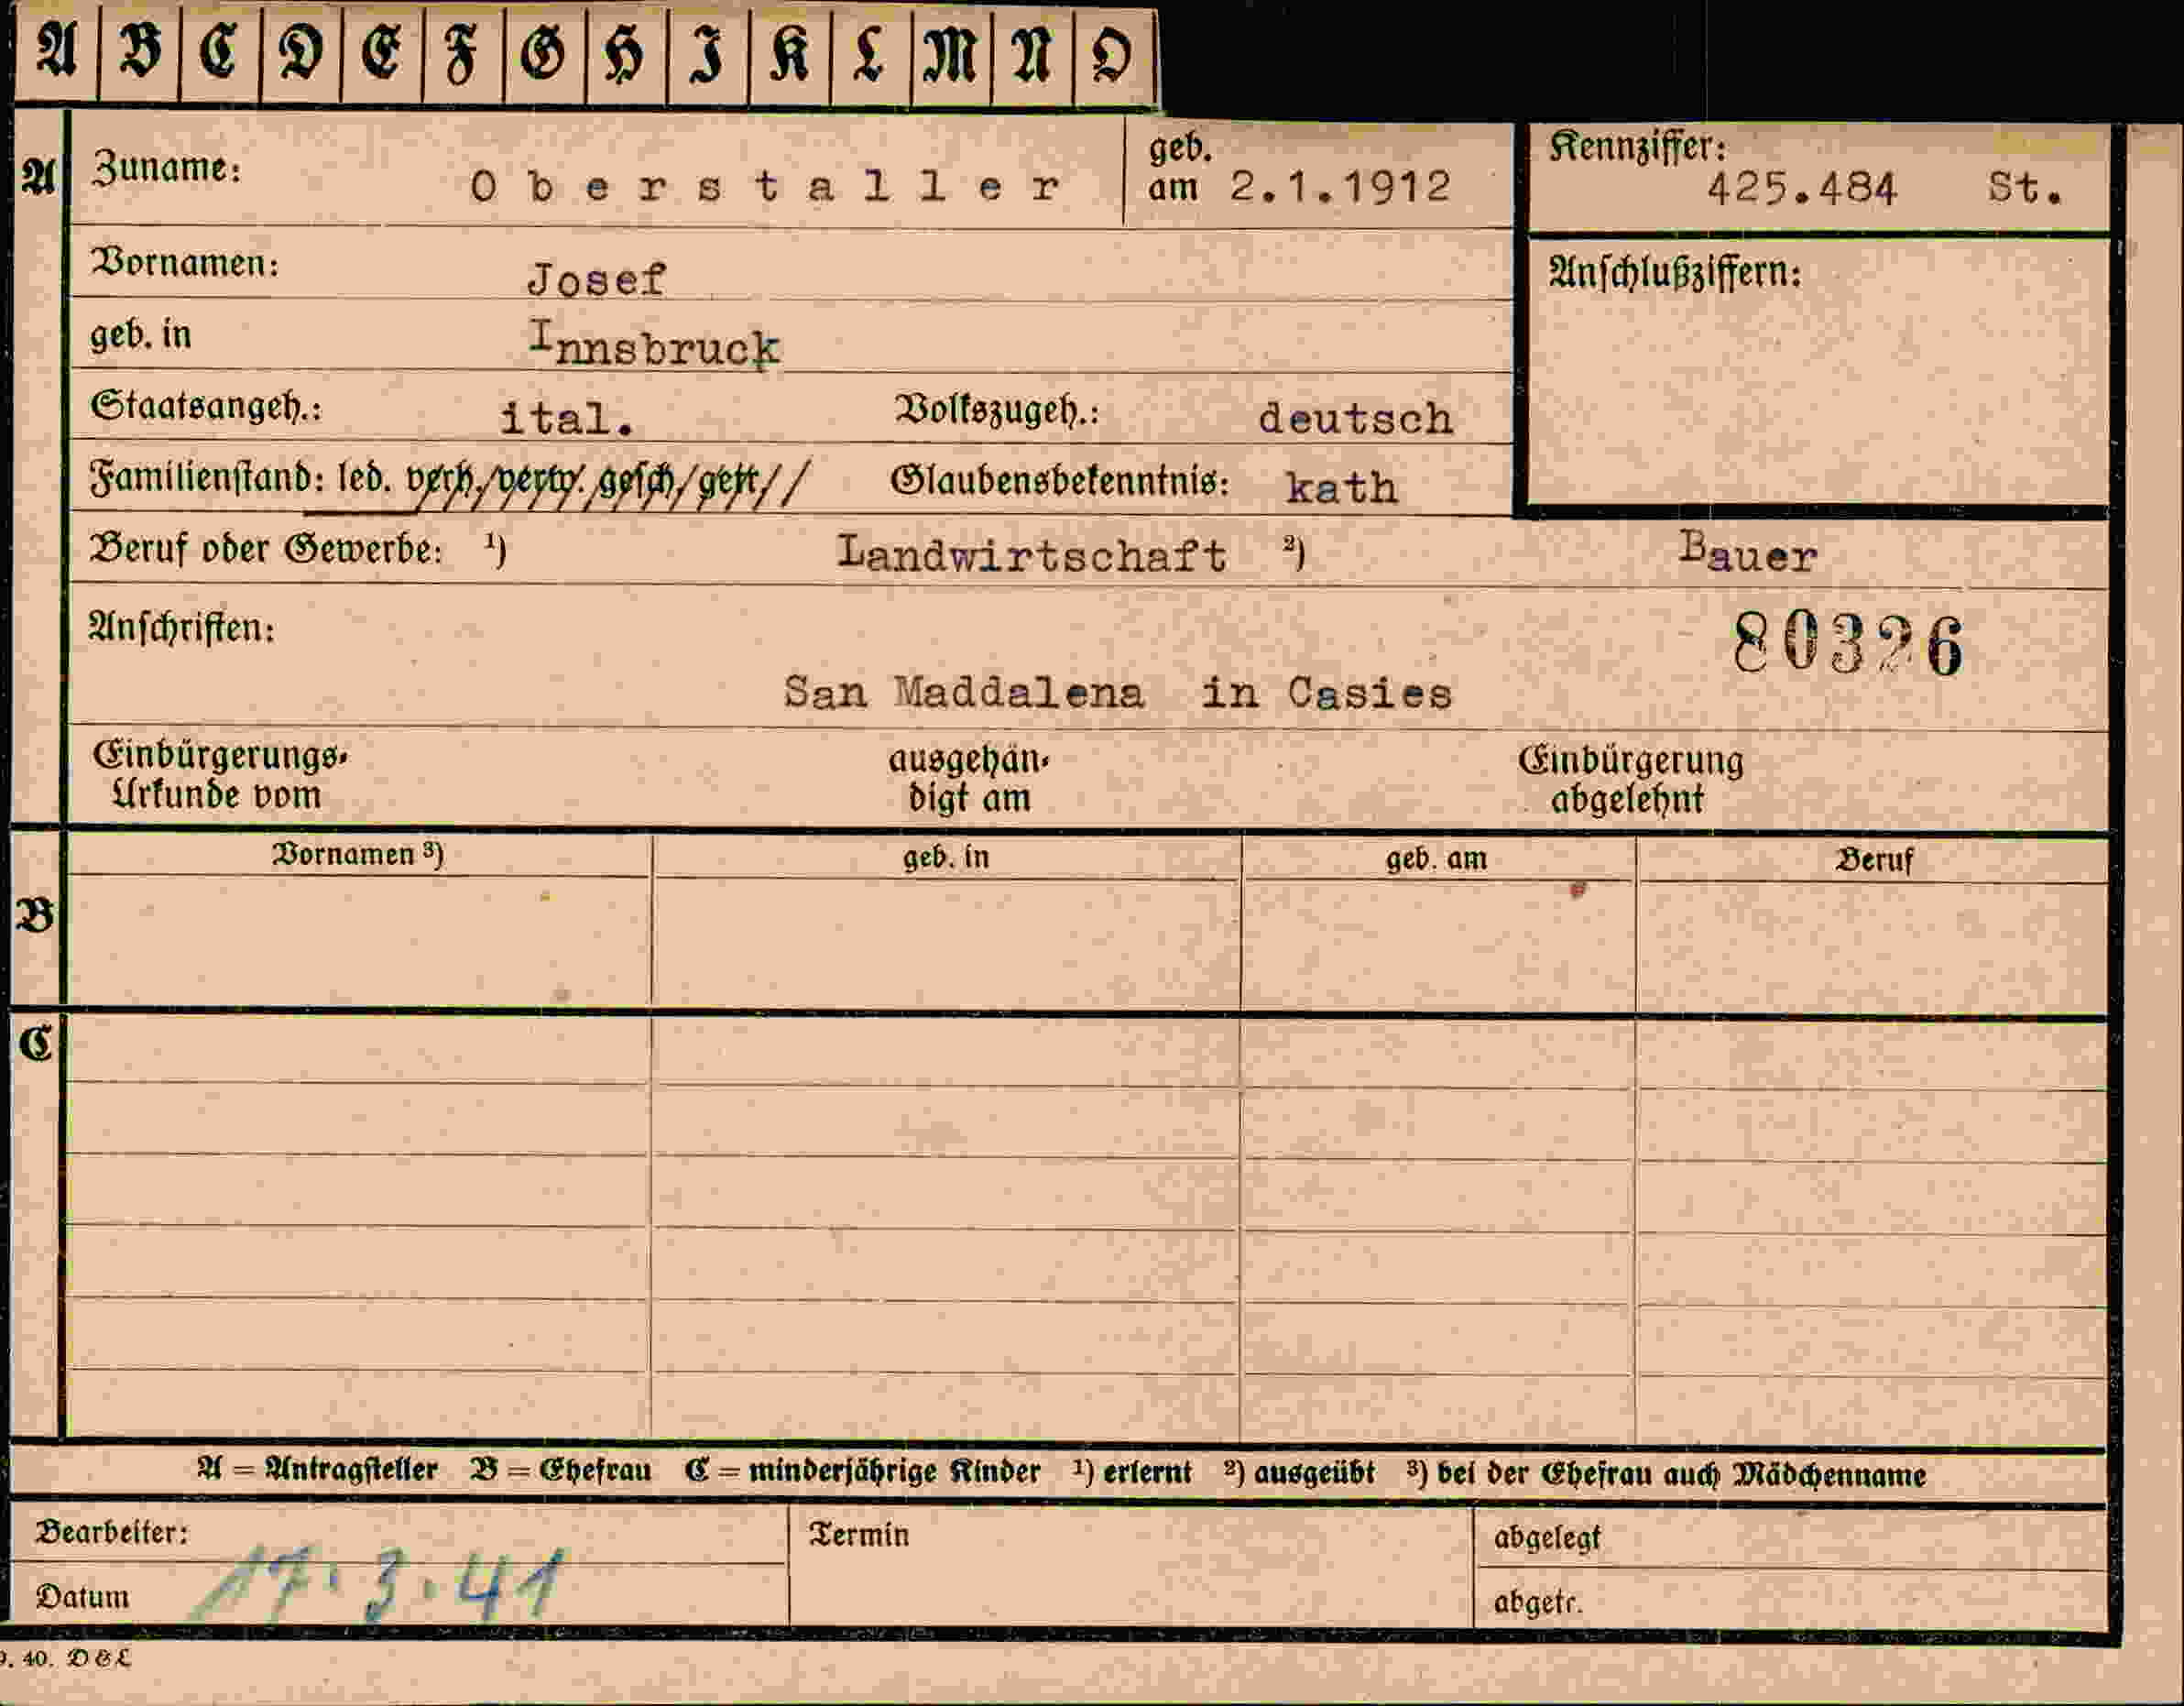 A B C D E F G H I K L M N O
A Zuname: Oberstaller geb. am 2.1.1912 Kennziffer: 425.484 St.
Vornamen: Josef Anschlußziffern:
geb. in Innsbruck
Staatsangeh.: ital. Volkszugeh.: deutsch
Familienstand: led. verh. verw. gesch. getr. Glaubensbekenntnis: kath
Beruf oder Gewerbe: ¹) Landwirtschaft ²) Bauer
Anschriften: 80326
San Maddalena in Casies
Einbürgerungs- ausgehän- Einbürgerung
Urkunde vom digt am abgelehnt
Vornamen ³) geb. in geb. am Beruf
B
C
A = Antragsteller B = Ehefrau C = minderjährige Kinder ¹) erlernt ²) ausgeübt ³) bei der Ehefrau auch Mädchenname
Bearbeiter: Termin abgelegt
Datum 17.3.41 abgetr.
40. D&L